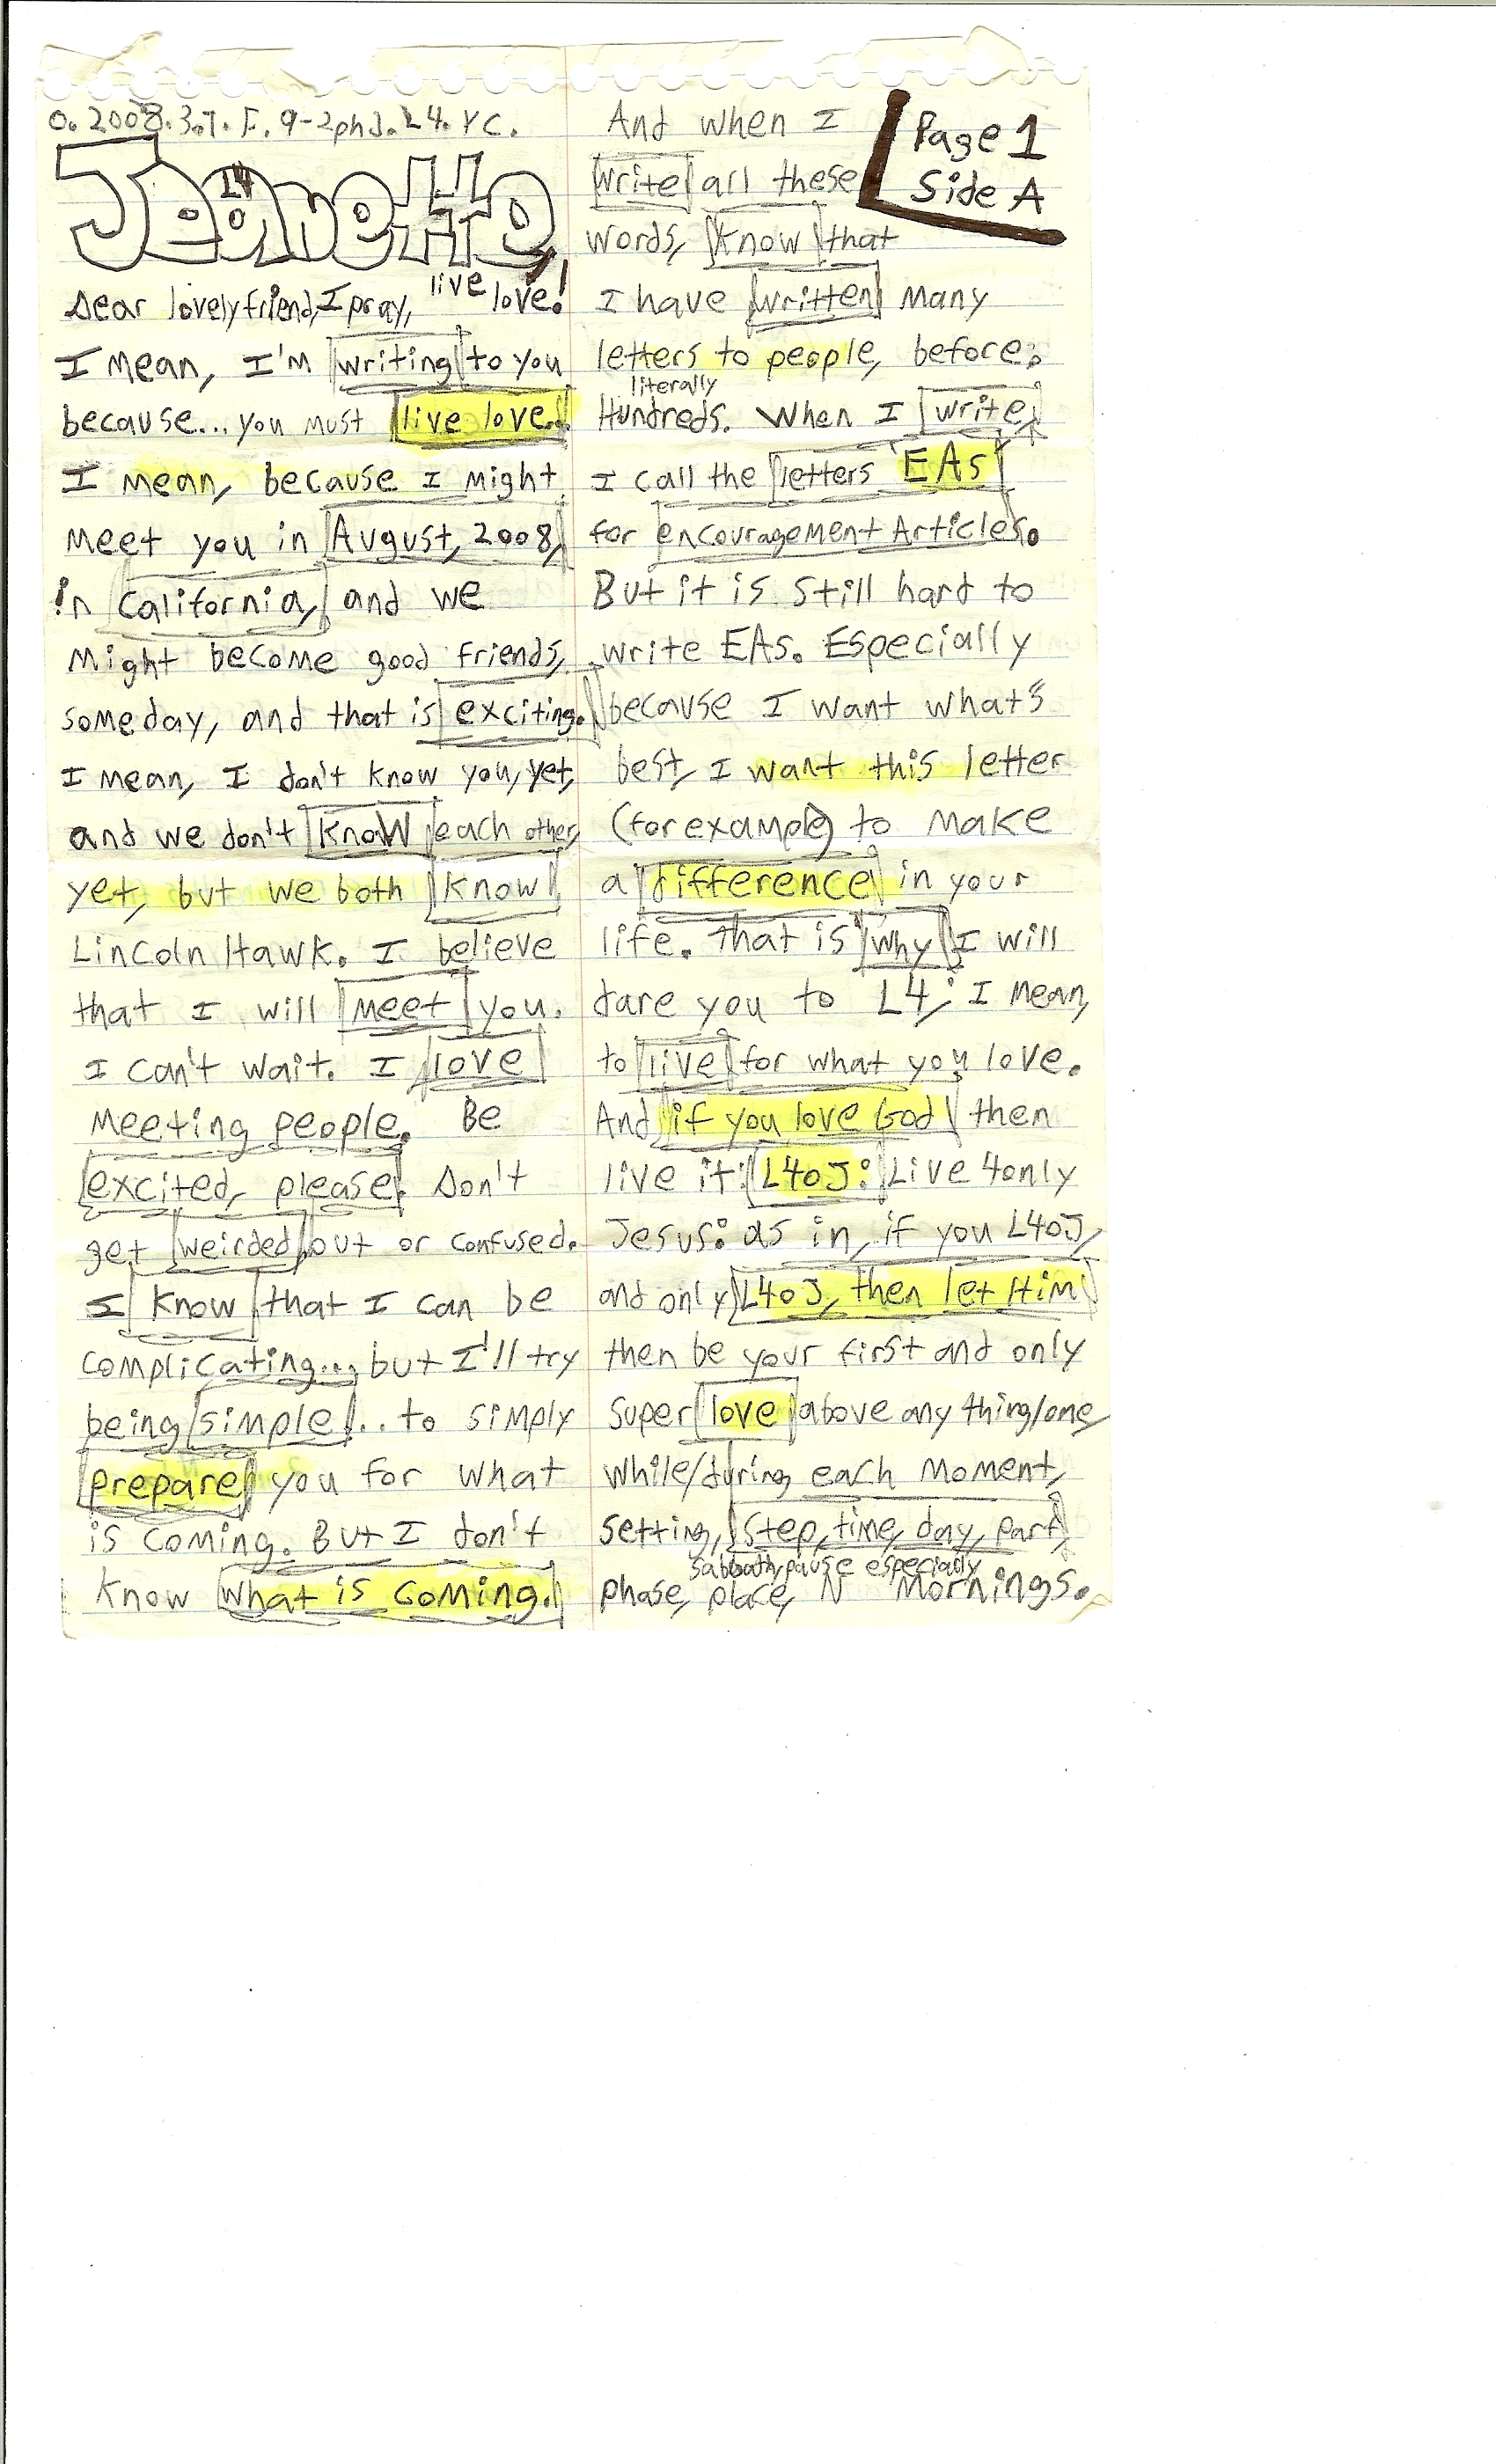 0.2008.3.7. F. 9-2ph J. L4. YC.
Jeanette,
L4
live love!
Dear lovely friend, I pray,
I mean, I'm writing to you
because... you must live love.
I mean, because I might
meet you in August, 2008,
in California, and we
might become good friends,
someday, and that is exciting.
I mean, I don't know you, yet,
and we don't know each other,
yet, but we both know
Lincoln Hawk. I believe
that I will meet you.
I can't wait. I love
meeting people. Be
excited, please. Don't
get weirded out or confused.
I know that I can be
complicating... but I'll try
being simple... to simply
prepare you for what
is coming. But I don't
know what is coming.
Page 1
Side A
And when I
write all these
words, know that
I have written many
letters to people, before:
literally
Hundreds. When I write,
I call the letters "EAs"
for encouragement Articles.
But it is still hard to
write EAs. Especially
because I want what's
best, I want this letter
(for example) to make
a difference in your
life. That is why I will
dare you to L4; I mean,
to live for what you love.
And if you love God then
live it: L4oJ: Live 4only
Jesus: as in, if you L4oJ,
and only L4oJ, then let Him
then be your first and only
super love above any thing/one
while/during each moment,
setting, step, time, day, part,
sabbath, pause especially
phase, place, N Mornings.